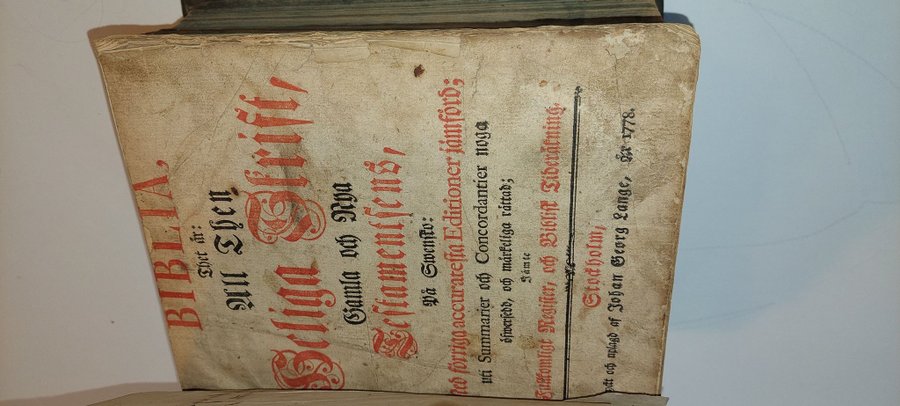 BIBLIA,
Thet är:
All Then
Heliga Skrift,
Gamla och Nya
Testamensens,
På Swensko:
förriga accurateſta Editioner jämförd;
uti Summarier och Concordantier noga
öfwerſedd, och märkeliga rättad;
Jämte
Fullkomligt Regiſter, och Bibliſk Tideräkning,
Stockholm,
och uplagd af Johan Georg Lange, År 1778.